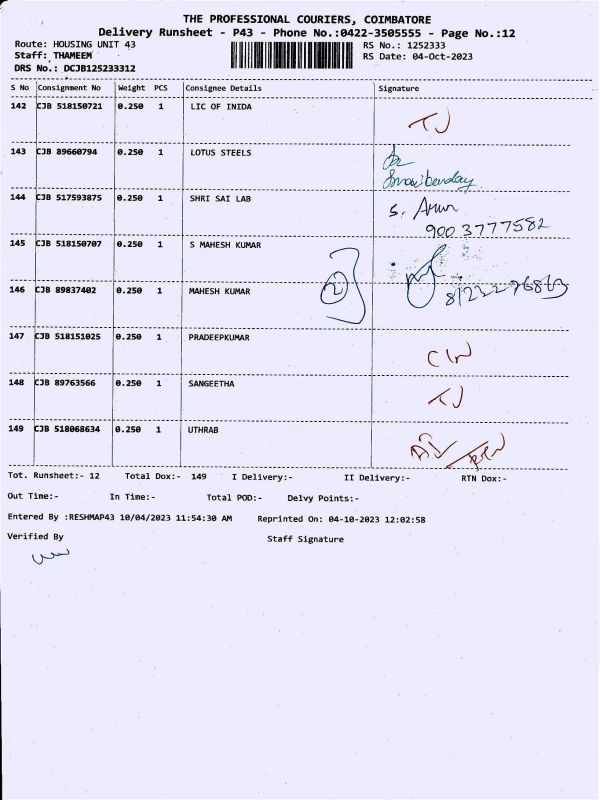 THE PROFESSIONAL COURIERS, COIMBATORE
Delivery Runsheet - P43 - Phone No.:0422-3505555 - Page No.:12
Route: HOUSING UNIT 43 RS No.: 1252333
Staff: THAMEEM RS Date: 04-Oct-2023
DRS No.: DCJB125233312
S No Consignment No Weight PCS Consignee Details Signature
142 CJB 518150721 0.250 1 LIC OF INIDA TJ
143 CJB 89660794 0.250 1 LOTUS STEELS
144 CJB 517593875 0.250 1 SHRI SAI LAB S. Arun
900 3777582
145 CJB 518150707 0.250 1 S MAHESH KUMAR
146 CJB 89837402 0.250 1 MAHESH KUMAR 2
147 CJB 518151025 0.250 1 PRADEEPKUMAR
148 CJB 89763566 0.250 1 SANGEETHA TJ
149 CJB 518068634 0.250 1 UTHRAB
Tot. Runsheet:- 12 Total Dox:- 149 I Delivery:- II Delivery:- RTN Dox:-
Out Time:- In Time:- Total POD:- Delvy Points:-
Entered By :RESHMAP43 10/04/2023 11:54:30 AM Reprinted On: 04-10-2023 12:02:58
Verified By Staff Signature